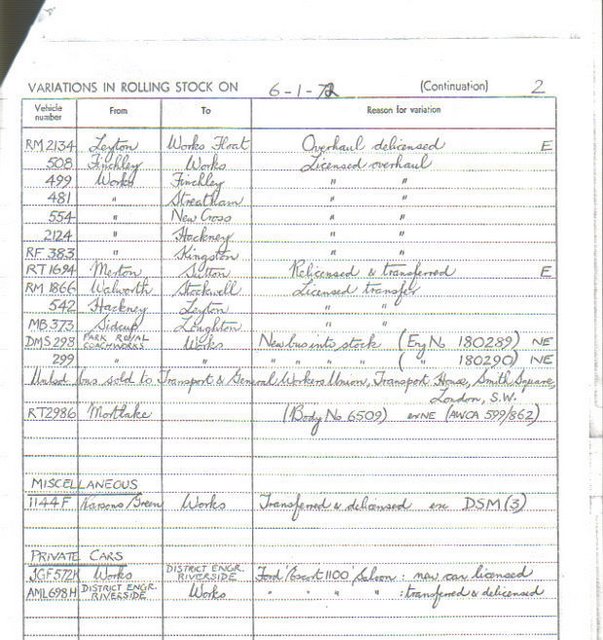 VARIATIONS IN ROLLING STOCK ON 6-1-72 (Continuation) 2
Vehicle number From To Reason for variation
RM 2134 Leyton Works Float Overhaul delicensed E
508 Finchley Works Licensed overhaul
499 Works Finchley " "
481 " Streatham " "
554 " New Cross " "
2124 " Hackney " "
RF 383 " Kingston " "
RT 1694 Merton Sutton Relicensed & transferred E
RM 1866 Walworth Stockwell Licensed transfer
542 Hackney Leyton " "
MB 373 Sidcup Loughton " "
DMS 298 PARK ROYAL COACHWORKS Works New bus into stock (Eng No 180289) NE
299 " " " " " " ( " 180290) NE
bus sold to Transport & General Workers Union, Transport House, Smith Square,
London, S.W.
RT2986 Mortlake (Body No 6509) ex NE (AWCA 599/862)
MISCELLANEOUS
1144F Parsons/Green Works Transferred & delicensed ex DSM (3)
PRIVATE CARS
JGF 572K Works DISTRICT ENGR. RIVERSIDE Ford 'Escort 1100' Saloon : new car licensed
AML 698H DISTRICT ENGR. RIVERSIDE Works " " " " : transferred & delicensed